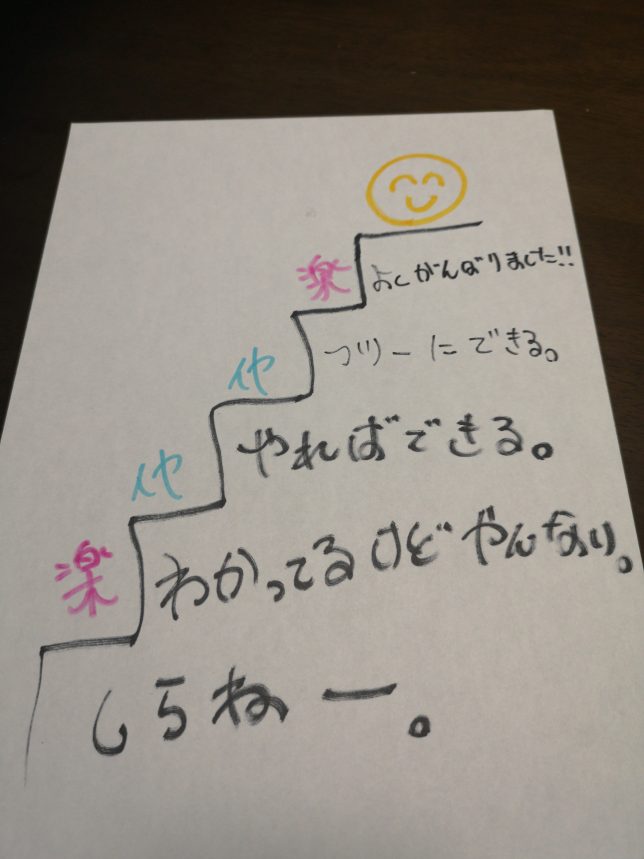 楽
よくがんばりました!!
イヤ
フツーにできる。
イヤ
やればできる。
楽
わかってるけどやんない。
しらねー。